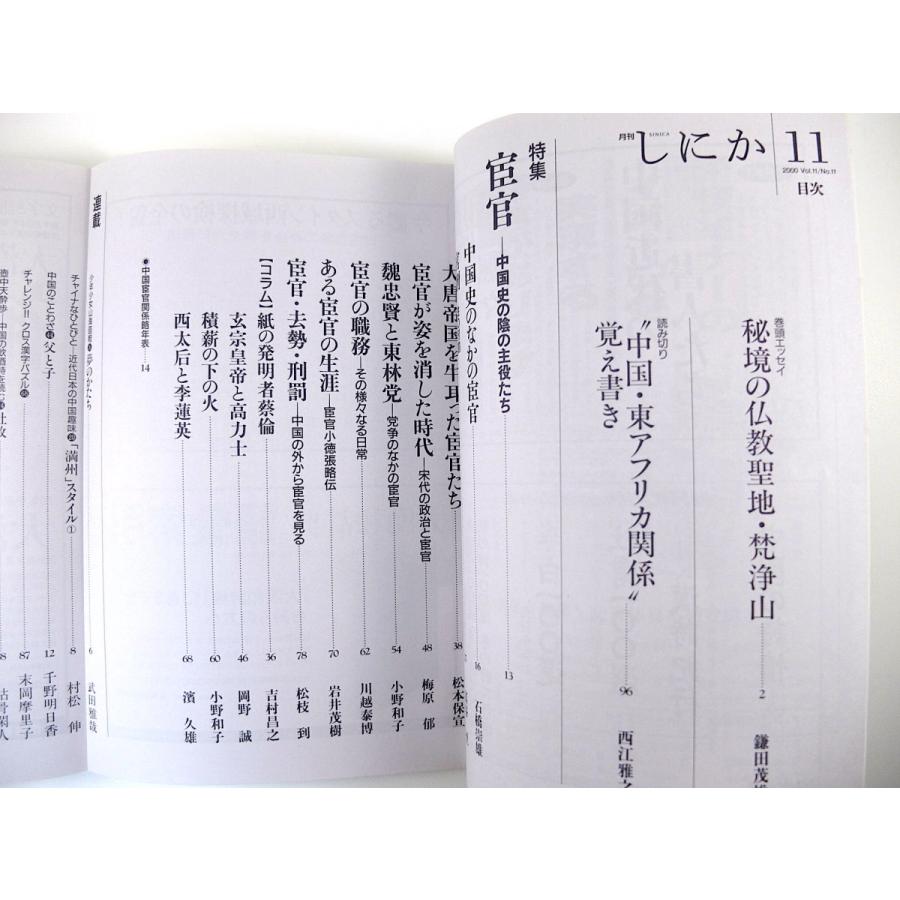 月刊 しにか SINICA 11
2000 Vol.11/No.11
目次
巻頭エッセイ
秘境の仏教聖地・梵浄山 2 鎌田茂雄
読み切り
〝中国・東アフリカ関係〟
覚え書き 96 西江雅之
特集
宦官―中国史の陰の主役たち 13
中国史のなかの宦官 16 石橋崇雄
大唐帝国を牛耳った宦官たち 38 松本保宣
宦官が姿を消した時代―宋代の政治と宦官 48 梅原 郁
魏忠賢と東林党―党争のなかの宦官 54 小野和子
宦官の職務―その様々なる日常 62 川越泰博
ある宦官の生涯―宦官小徳張略伝 70 岩井茂樹
宦官・去勢・刑罰―中国の外から宦官を見る 78 松枝 到
【コラム】紙の発明者蔡倫 36 吉村昌之
玄宗皇帝と高力士 46 岡野 誠
積薪の下の火 60 小野和子
西太后と李蓮英 68 濱 久雄
●中国宦官関係略年表 14
連載
のかたち 6 武田雅哉
チャイナなひとびと―近代日本の中国趣味⑳「満州」スタイル① 8 村松 伸
中国のことわざ㊶父と子 12 千野明日香
チャレンジ!! クロス漢字パズル 87 末岡摩里子
壺中天酔歩―中国の飲酒詩を読む